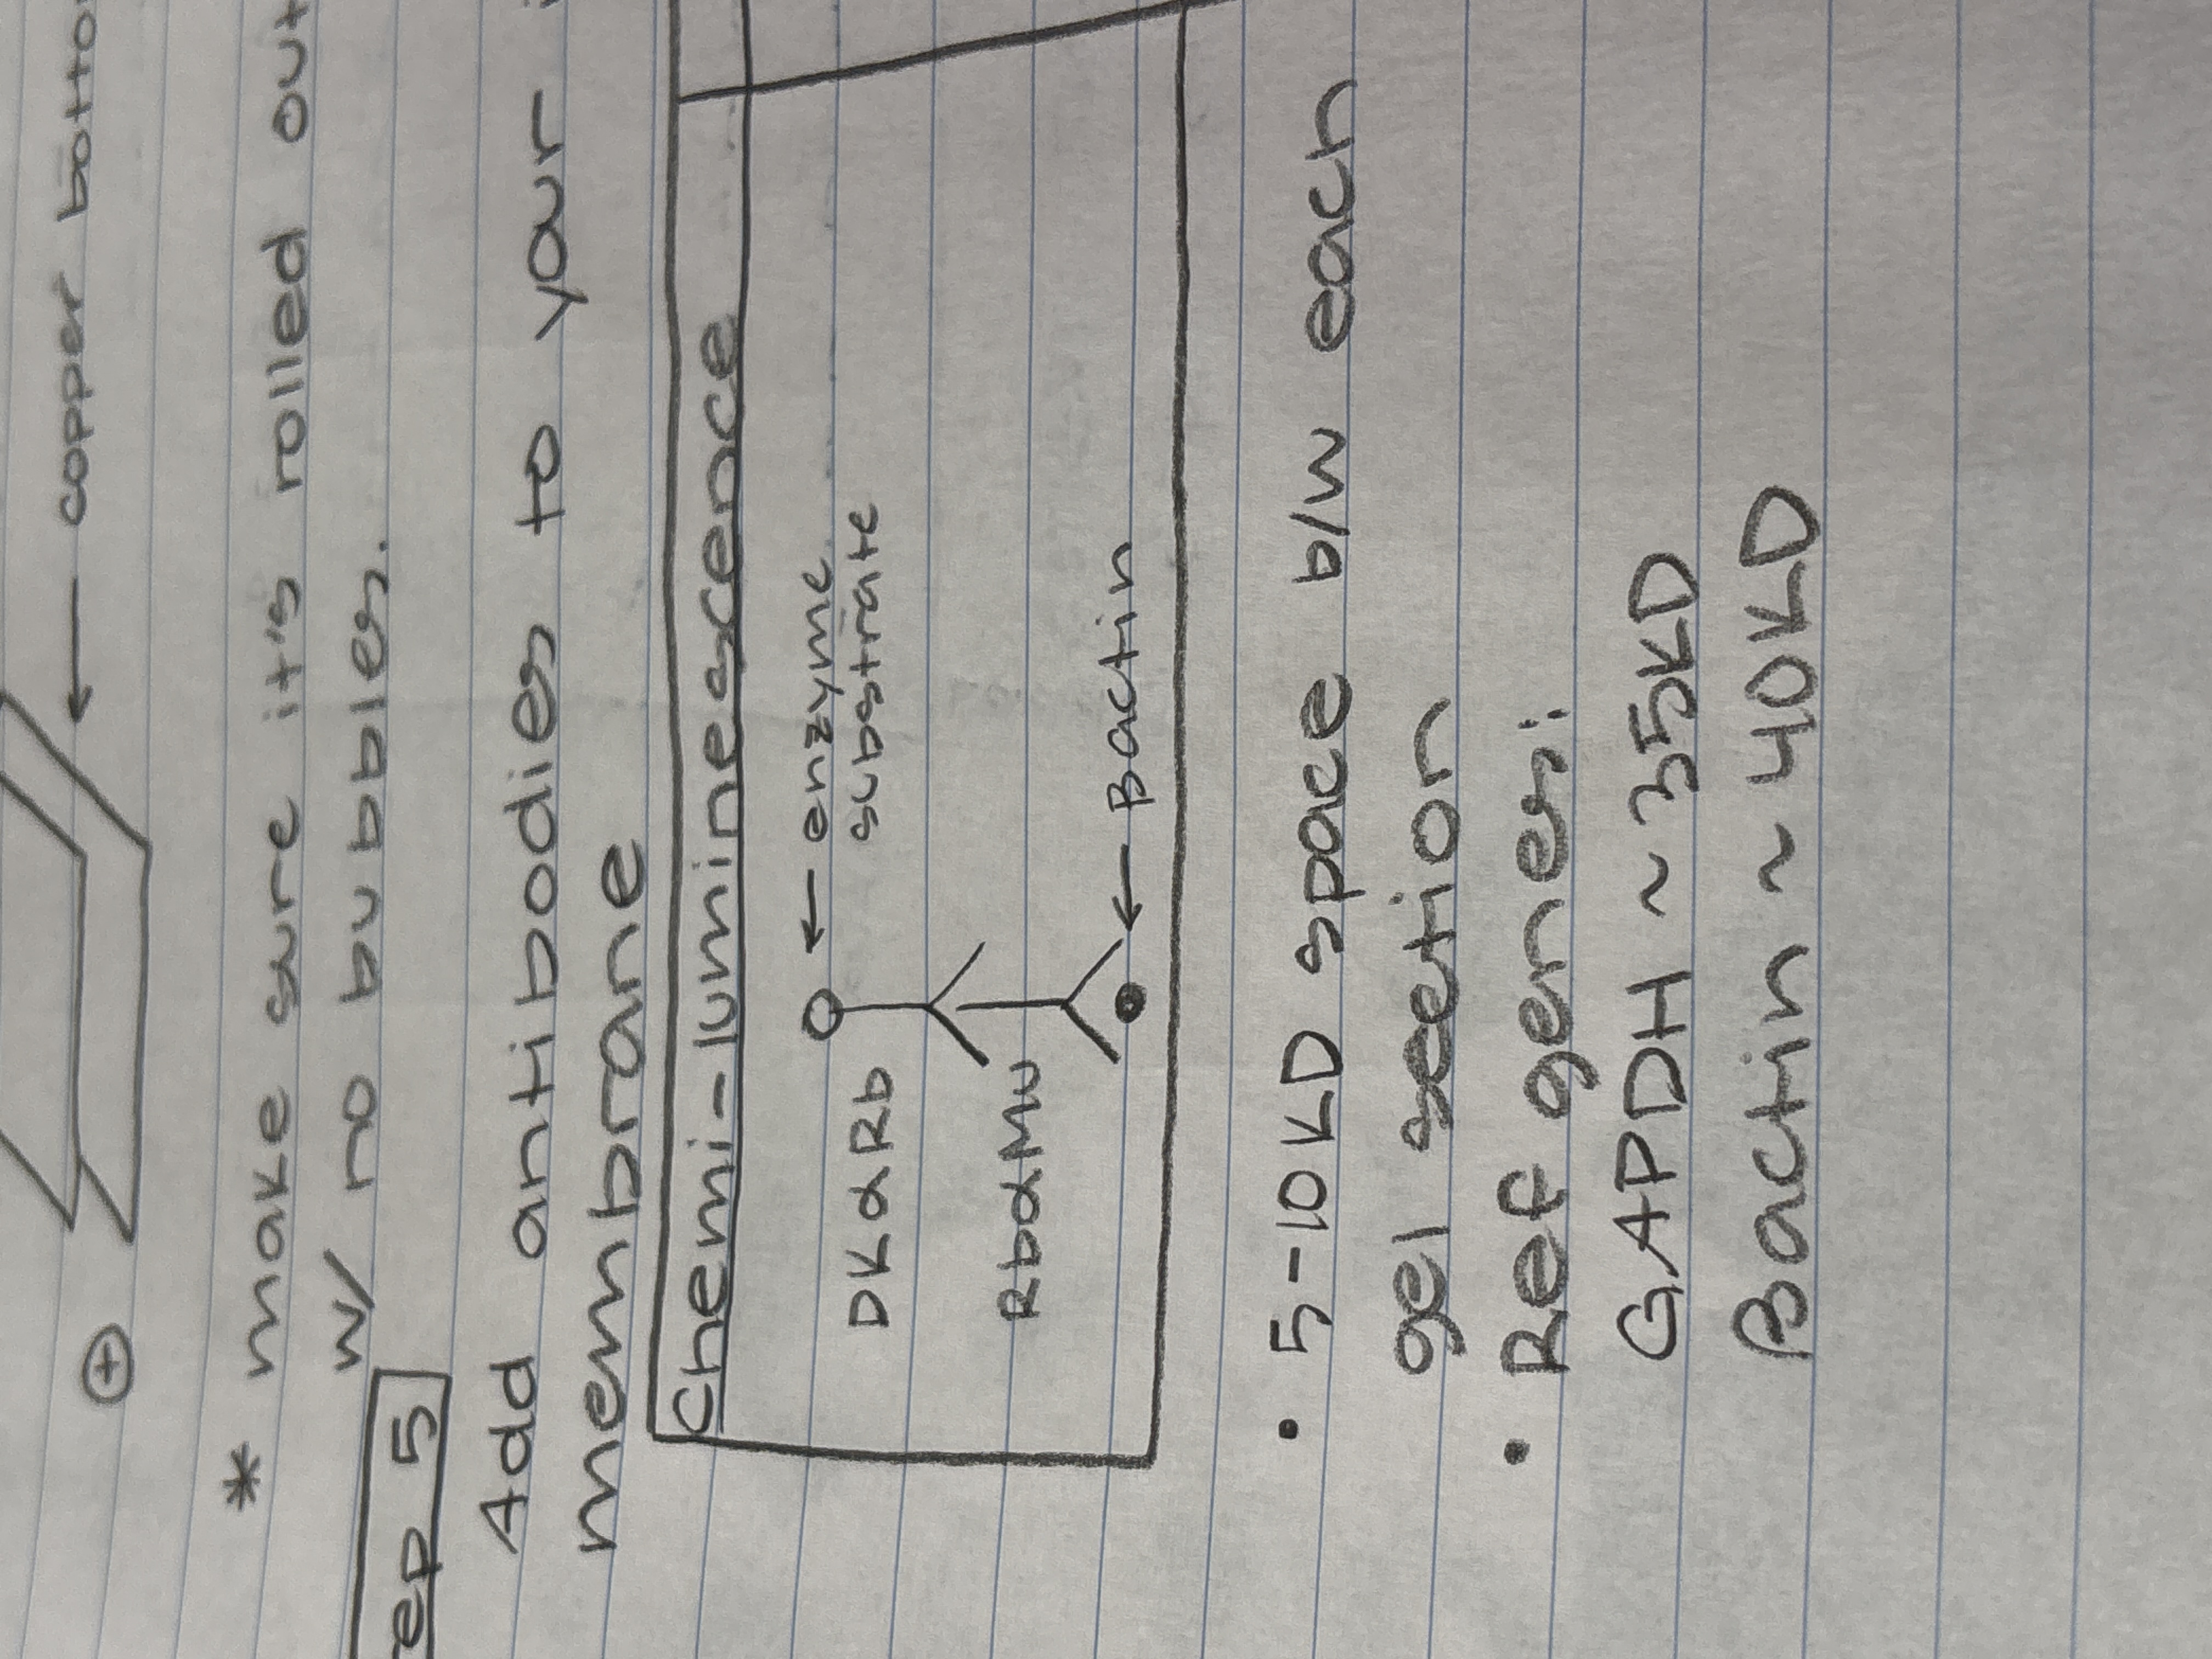 ← copper
+
* make sure it's rolled out
w/ no bubbles.
5
Add antibodies to your
membrane
Chemi-luminescence
← enzyme
substrate
DKαRb
RbαMu
← Bactin
• 5-10KD space b/w each
gel section
• Ref genes:
GAPDH ~ 35KD
Bactin ~ 40KD